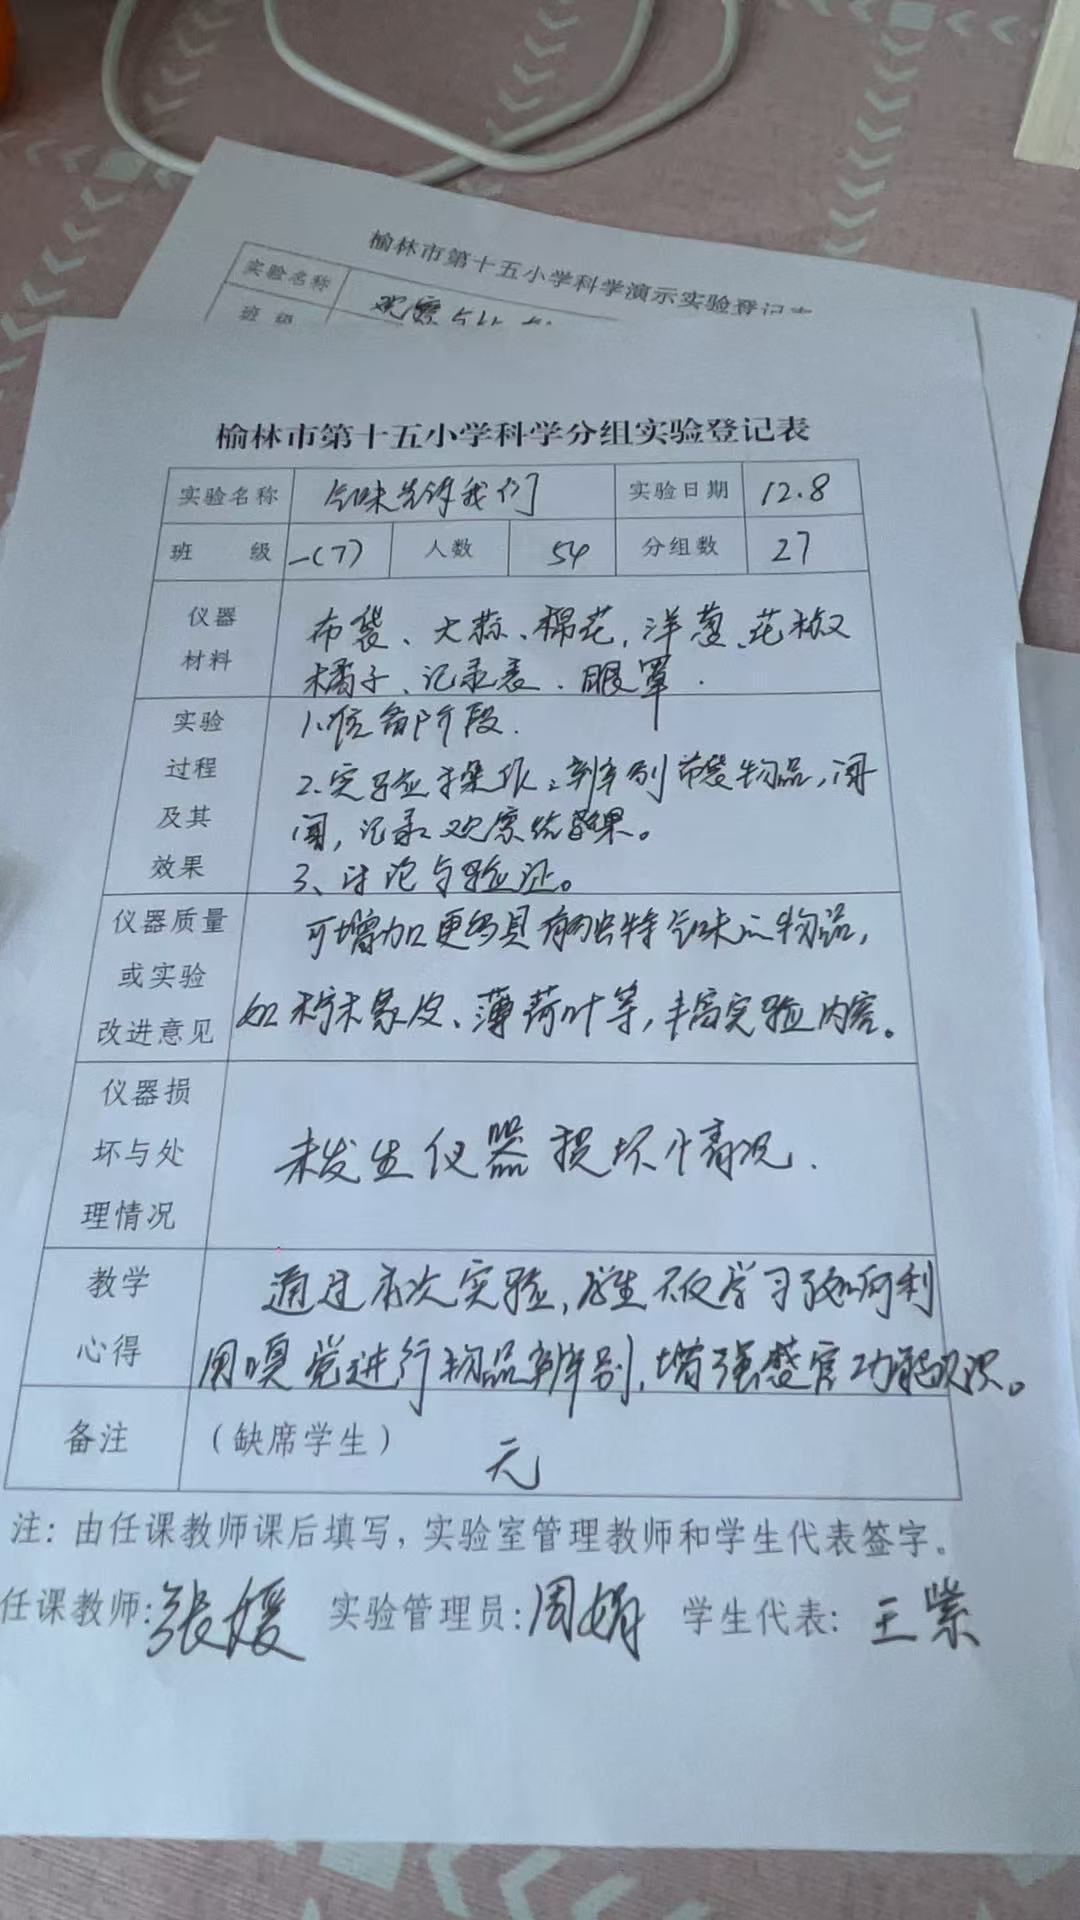 榆林市第十五小学科学演示实验登记表
实验名称 观察与比较
班 级
榆林市第十五小学科学分组实验登记表
实验名称 气味告诉我们 实验日期 12.8
班 级 一(7) 人数 54 分组数 27
仪器
材料
布袋、大蒜、棉花，洋葱、花椒
橘子、记录表、眼罩.
实验
过程
及其
效果
1、准备阶段.
2、实验操作：辨别布袋物品，闻
闻，记录观察结果。
3、讨论与验证。
仪器质量
或实验
改进意见
可增加更多具有独特气味的物品，
如 橡皮、薄荷叶等，丰富实验内容。
仪器损
坏与处
理情况
未发生仪器损坏情况.
教学
心得
通过本次实验，学生不仅学习了如何利
用嗅觉进行物品辨别，增强感官功能认识。
备注
(缺席学生)
无
注：由任课教师课后填写，实验室管理教师和学生代表签字。
任课教师:张媛 实验管理员:周娟 学生代表:王紫